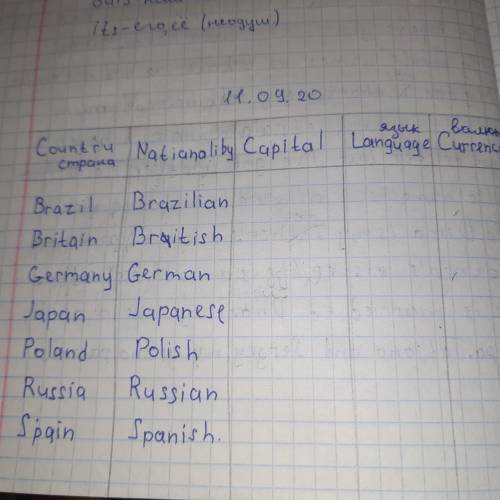 its-его, её (неодуш)
11.09.20
Country Natianality Capital язык валют
страна Language Currenc
Brazil Brazilian
Britain Braitish
Germany German
Japan Japanese
Poland Polish
Russia Russian
Spain Spanish.